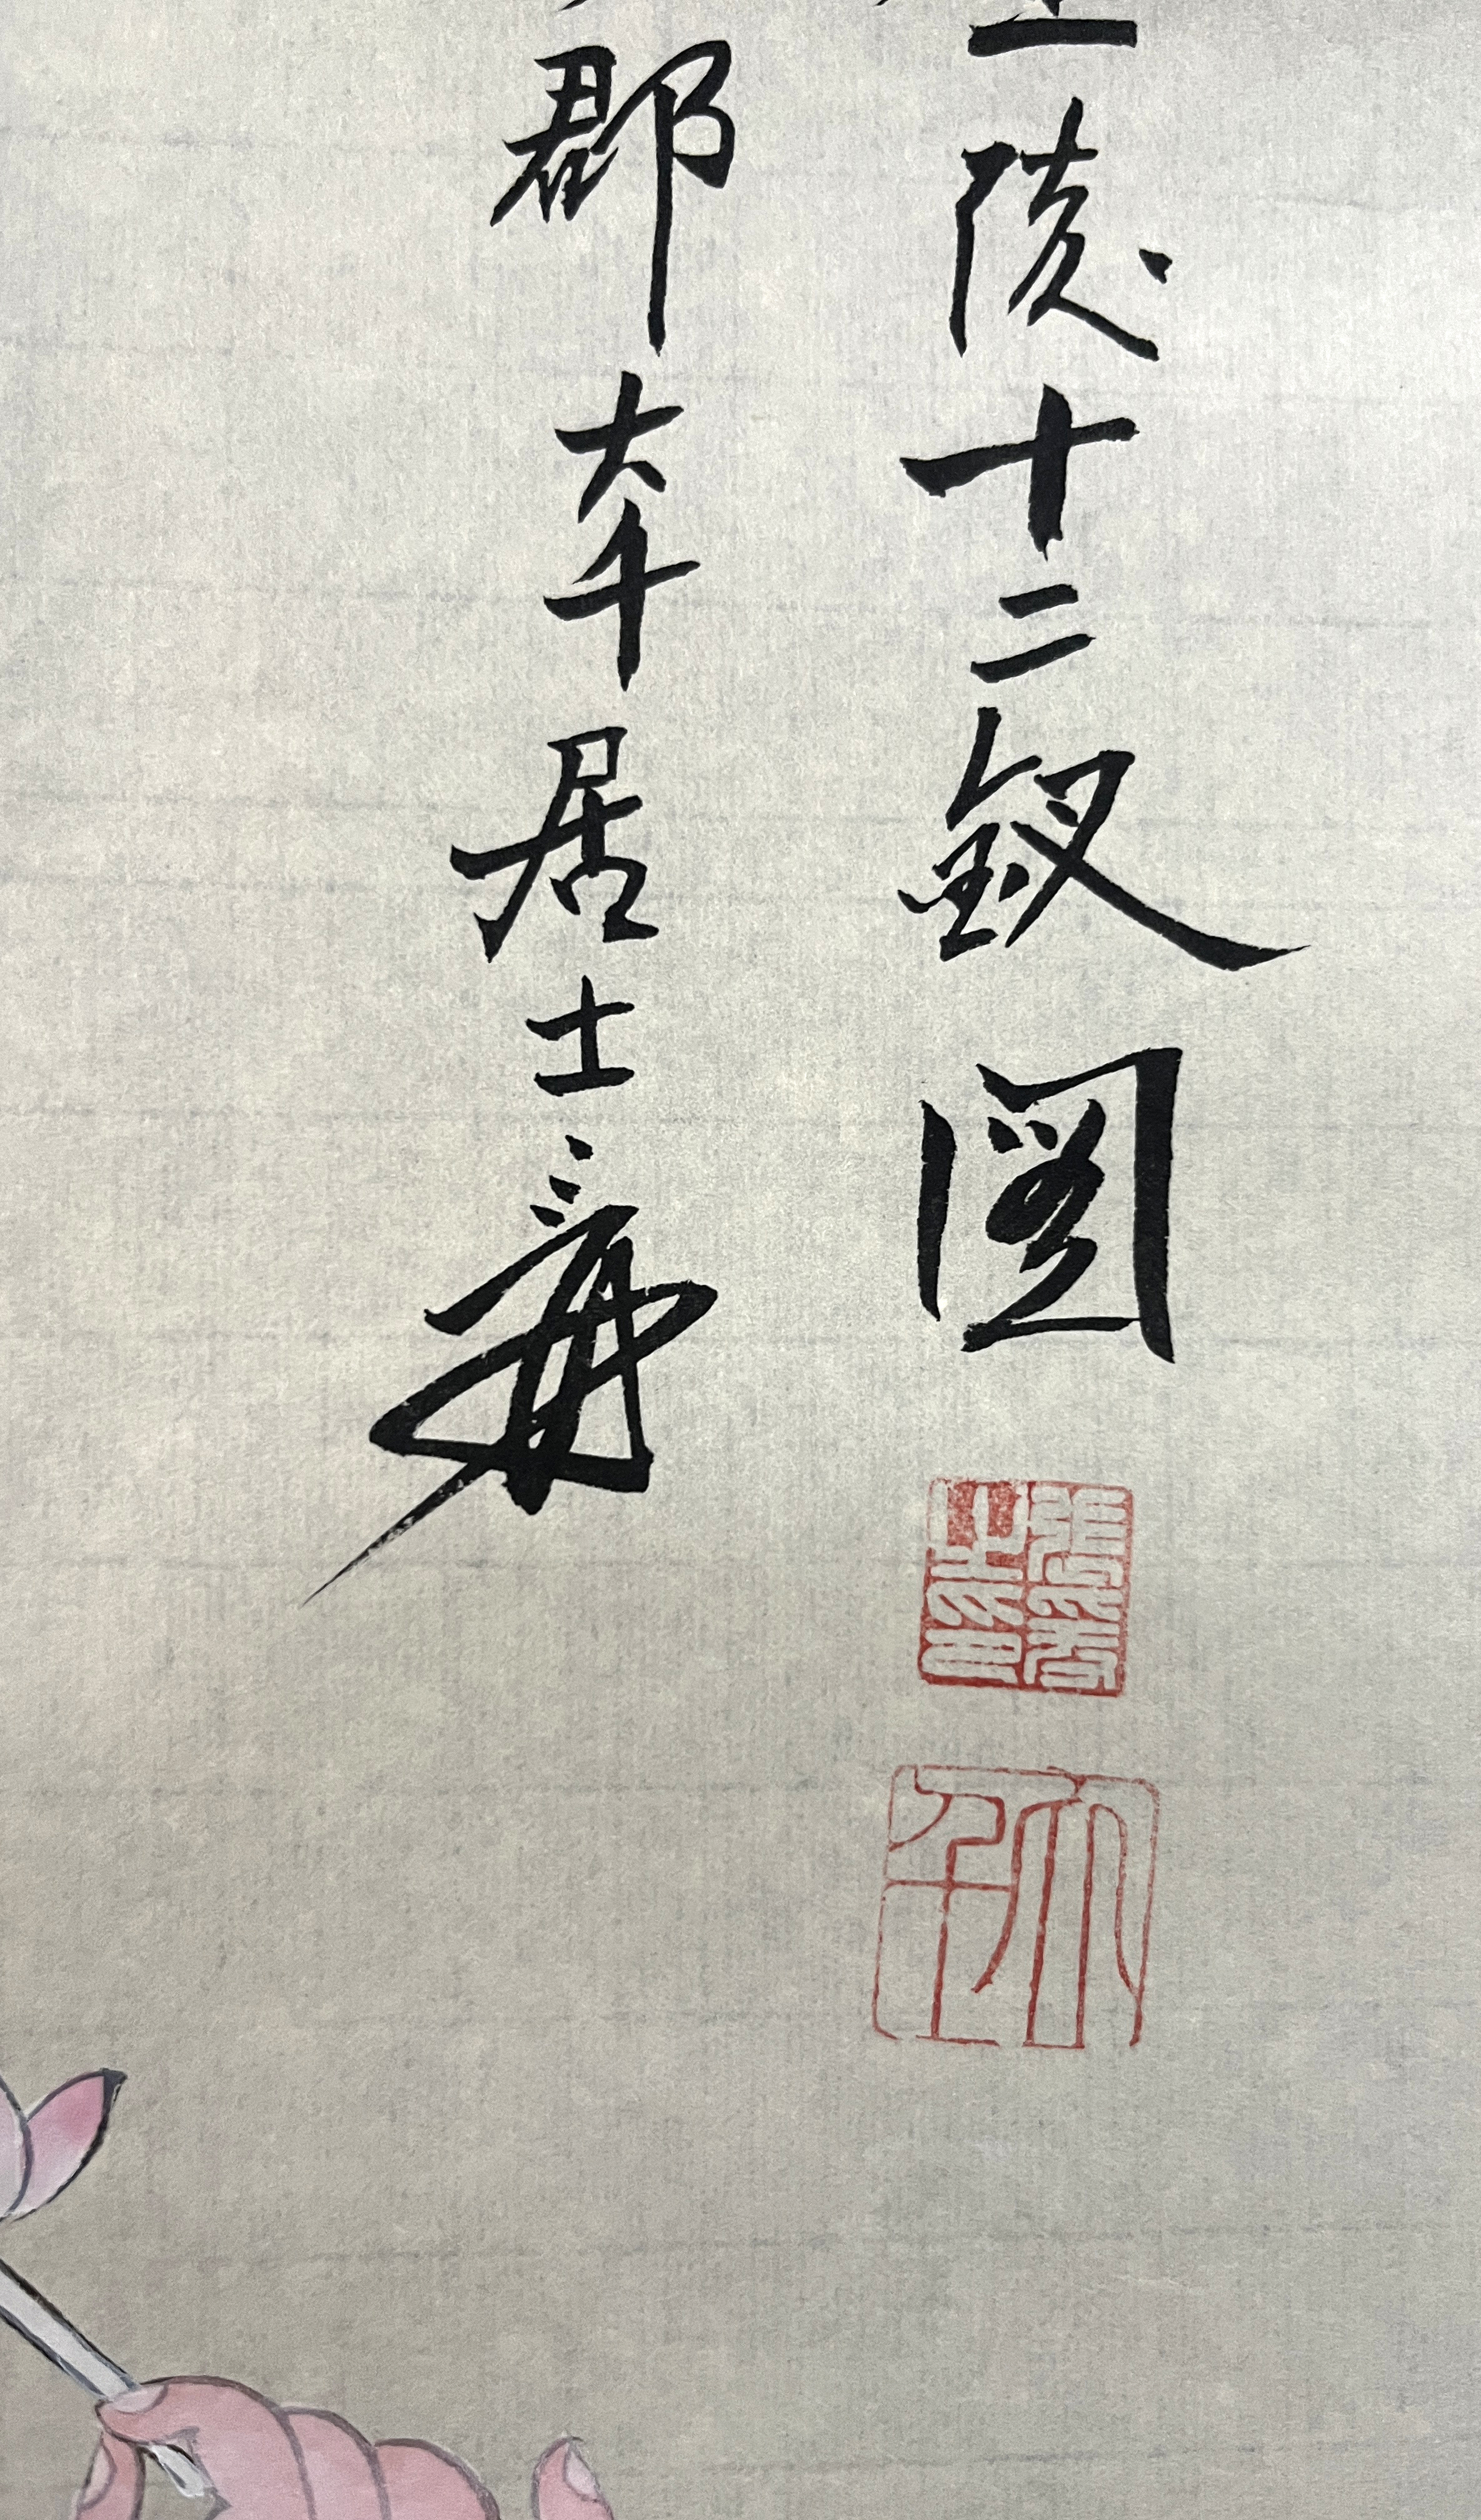 陵十二釵圖
郡大千居士爰
張爰之印
大千